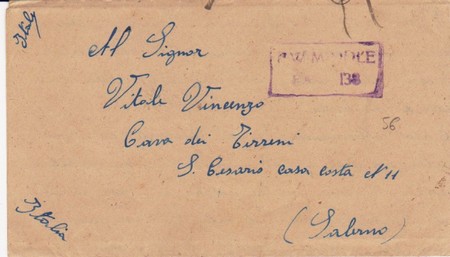 Italy
Al Signor
Vitale Vincenzo
Cava dei Tirreni
S. Cesario casa costa N 11
(Salerno)
Italia
138
56